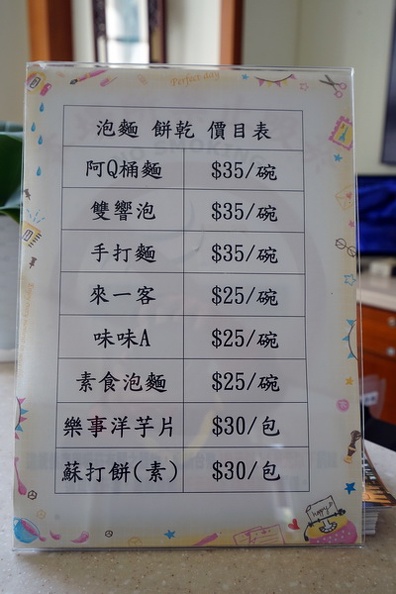 Perfect day
泡麵 餅乾 價目表
阿Q桶麵 $35/碗
雙響泡 $35/碗
手打麵 $35/碗
來一客 $25/碗
味味A $25/碗
素食泡麵 $25/碗
樂事洋芋片 $30/包
蘇打餅(素) $30/包
happy